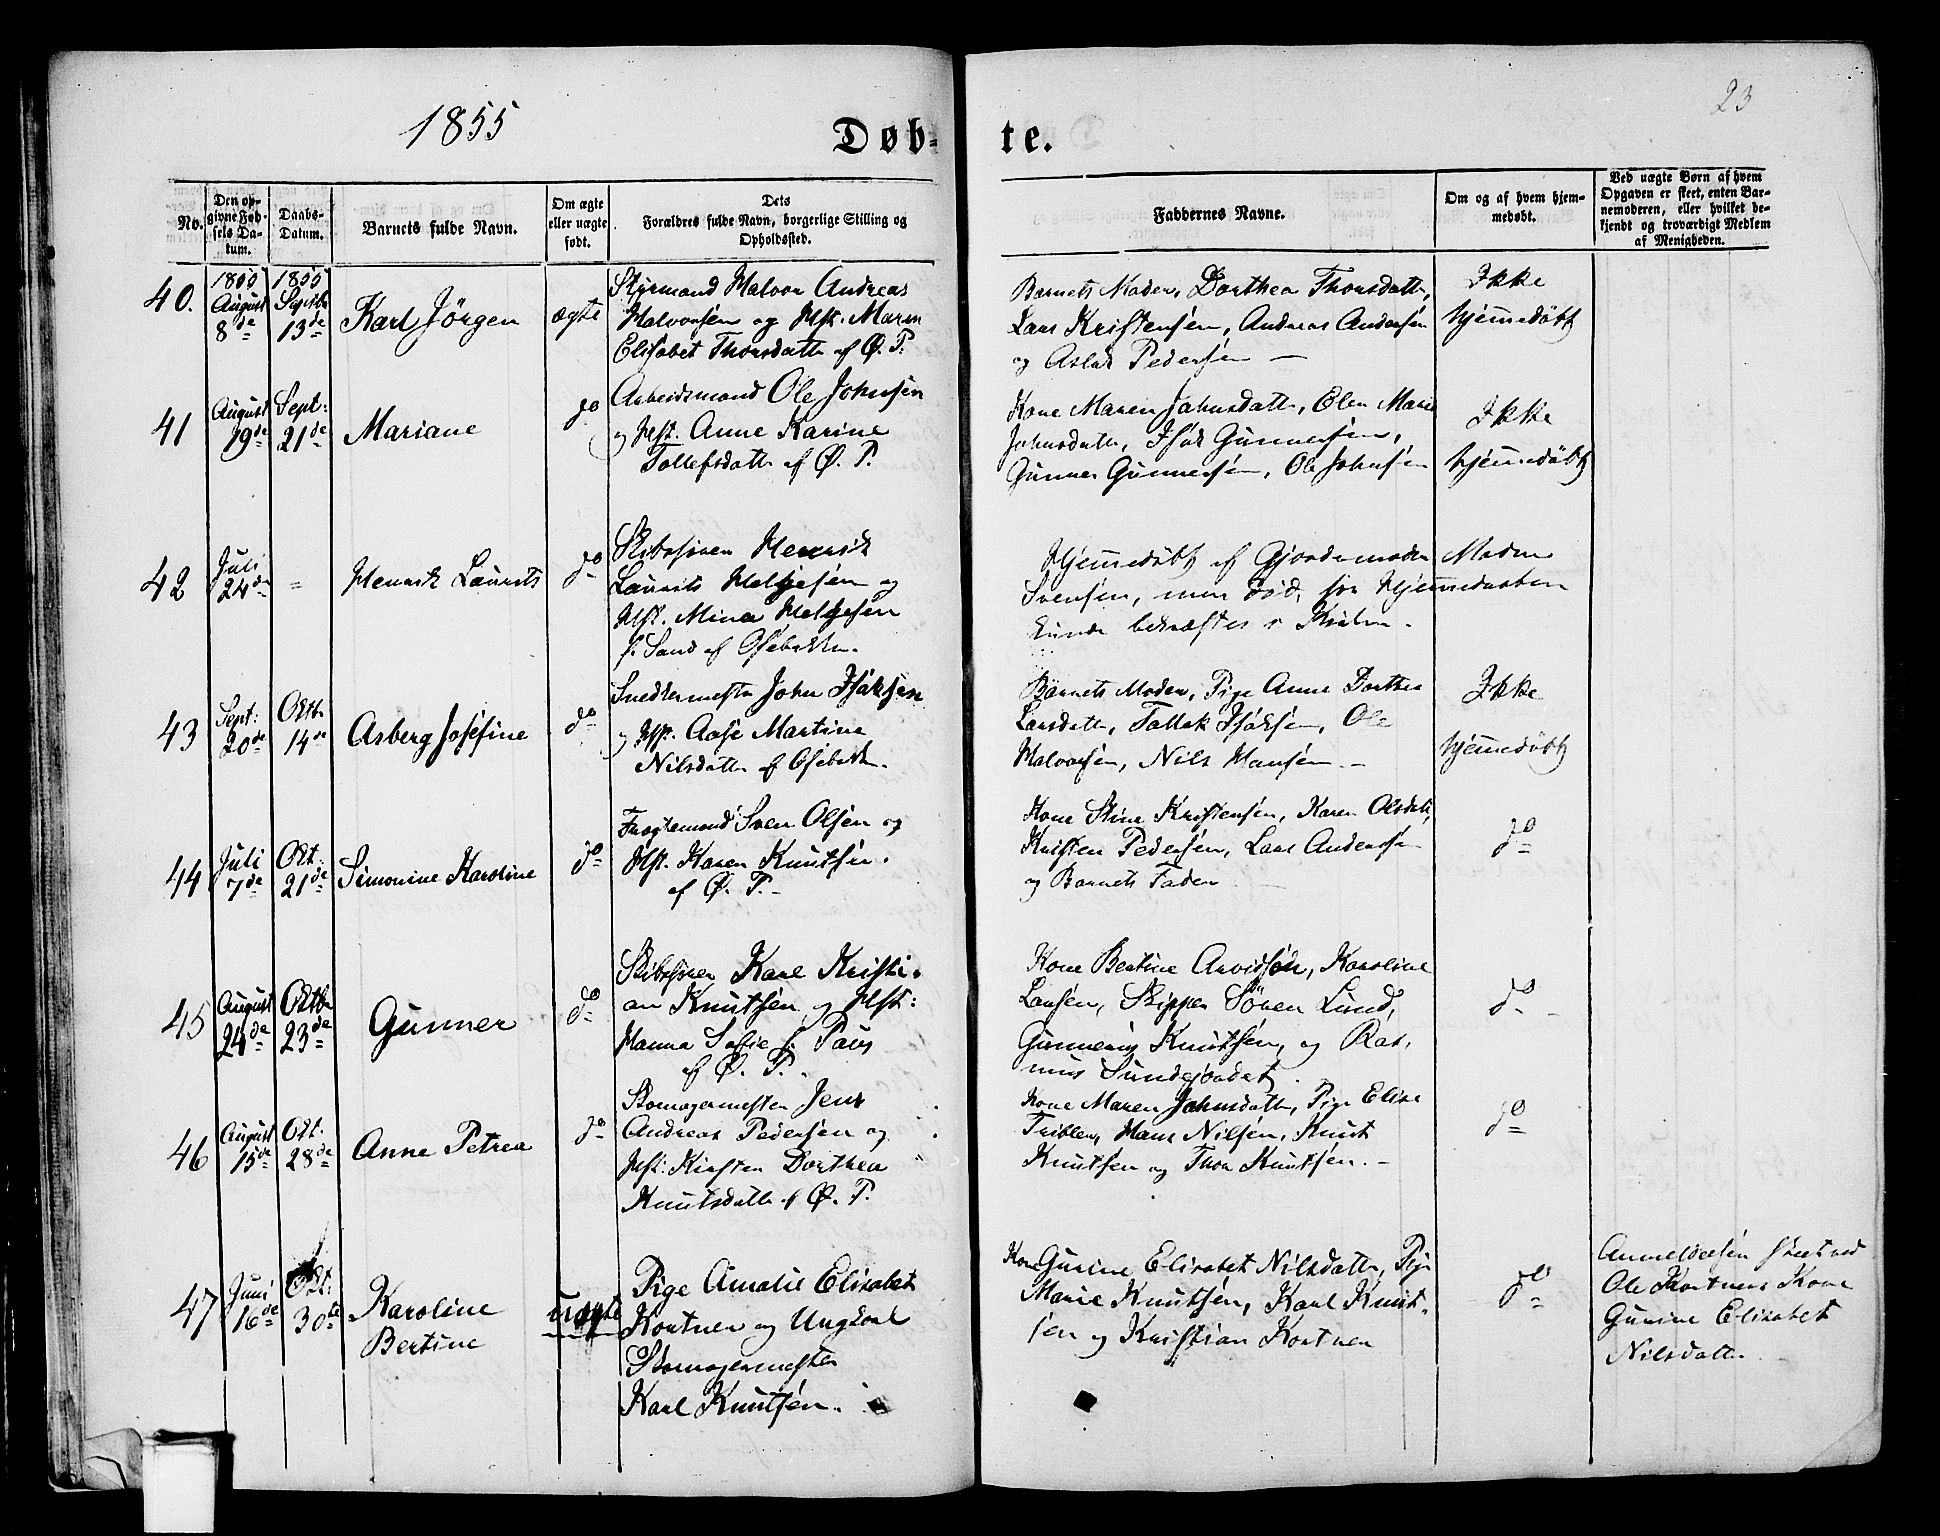 1855
23
Døb-
te.
No.
Den op-
givne Fød-
sels Da-
tum.
Daabs-
Datum.
Barnets fulde Navn.
Om ægte
eller uægte
født.
Dets
Forældres fulde Navn, borgerlige Stilling og
Opholdssted.
Faddernes Navne.
Om og af hvem hjem-
medøbt.
Ved uægte Børn af hvem
Opgaven er skeet, enten Bar-
nemoderen, eller hvilket be-
kjendt og troværdigt Medlem
af Menigheden.
40.
1855
August
8de
1855
Septbr
13de
Karl Jörgen
ægte
Styrmand Halvor Andreas
Halvorsen og Hst. Maren
Elisabet Thorsdatter af Ø. P.
Barnets Moder, Dorthea Thorsdatter,
Lars Kristensen, Andreas Andersen
og Aslak Pedersen —
Ikke
hjemmedöbt
41
August
19de
Sept:
21de
Mariane
do
Arbeidsmand Ole Johnsen
og Hst. Anne Karine
Tollefsdatter af Ø. P.
Kone Maren Johnsdatter, Elen Marie
Johnsdatter, Isak Gunnersen,
Gunner Gunnersen, Ole Johnsen
Ikke
hjemmedöbt
42
Juli
24de
=
Henrik Laurits
do
Skibsfører Henrik
Laurits Helgesen og
Hst. Mina Helgesen
f. Sand af Osebakken.
Hjemmedöbt af Gjordemoder Madam
Svensen, men död, för Hjemmedaaben
kunde bekræftes i Kirken.
43
Sept:
20de
Oktbr
14de
Asberg Josefine
do
Snedkermester John Isaksen
og Hst. Aase Martine
Nilsdatter af Osebakken.
Barnets Moder, Pige Anne Dorthea
Larsdatter, Tallak Isaksen, Ole
Halvorsen, Nils Hansen. —
Ikke
hjemmedöbt
44
Juli
7de
Okt:
21de
Simonine Karoline
do
Fragtemand Sven Olsen og
Hst. Karen Knutsen.
af Ø. P. -
Kone Stine Kristensen, Karen Olsdatter,
Kristen Pedersen, Lars Andersen
og Barnets Fader —
do
45
August
24de
Oktbr
23de
Gunner
do
Skibsfører Karl Kristi-
an Knutsen og Hst:
Hanna Sofie f. Paus
af Ø. P. -
Kone Bertine Arvidsen, Karoline
Larsen, Skipper Sören Lund,
Gunnerius Knutsen, og Ras-
mus Sundejordet.
do -
46
August
15de
Okt.
28de
Anne Petrea
do
Skomagermester Jens
Andreas Pedersen og
Hst: Kirsten Dorthea
Knutsdatter af Ø. P.
Kone Maren Johnsdatter, Pige Elise
Tribler, Hans Nilsen, Knut
Knutsen og Thor Knutsen. —
do
47
Juni
16de
Okt:
30te
Karoline
Bertine
uægte
Pige Amalie Elisabet
Kortner og Ungkarl
Skomagermester
Karl Knutsen.
Kone Gunine Elisabet Nilsdatter, Pige
Marie Knutsen, Karl Knut-
sen og Kristian Kortner
do
Anmeldelsen skeet ved
Ole Kortners Kone
Gunine Elisabet
Nilsdatter